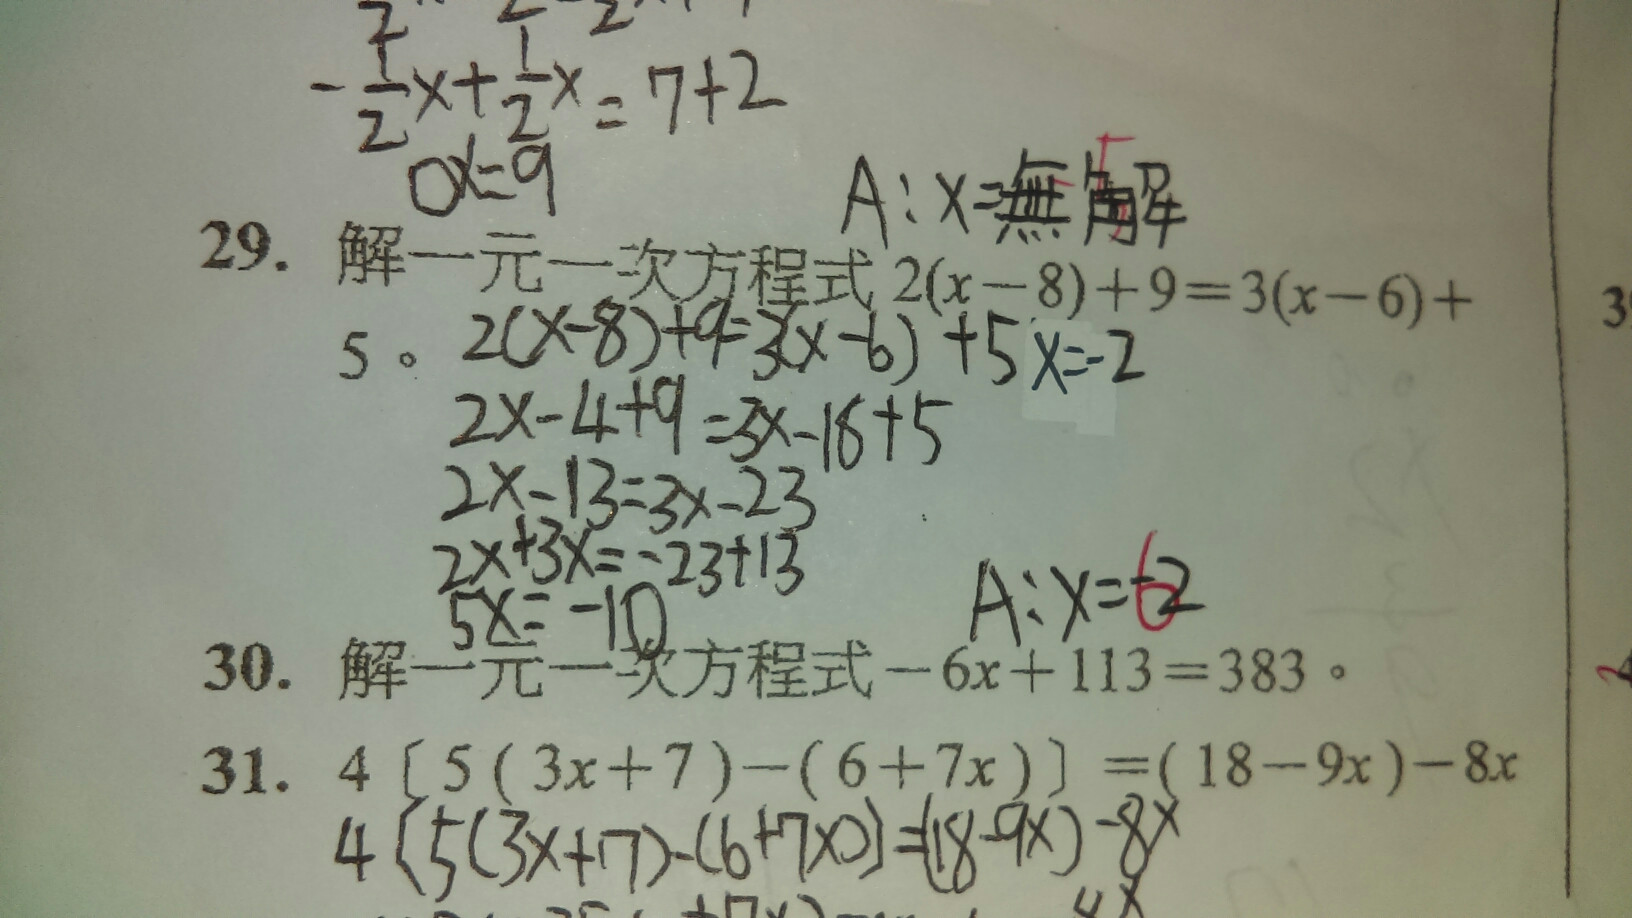 -1/2x+1/2x=7+2
0x=9
A:x=無解
29. 解一元一次方程式 2(x-8)+9=3(x-6)+
5。 2(x-8)+9=3(x-6)+5 x=-2
2x-4+9=3x-18+5
2x-13=3x-23
2x+3x=-23+13
5x=-10
A:x=-2
6
30. 解一元一次方程式-6x+113=383。
31. 4〔5(3x+7)-(6+7x)〕=(18-9x)-8x
4[5(3x+7)-(6+7x)]=(18-9x)-8x